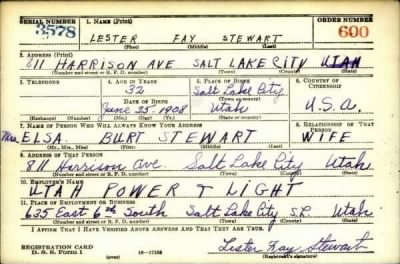 SERIAL NUMBER 1. NAME (Print) ORDER NUMBER
3578 LESTER FAY STEWART 600
(First) (Middle) (Last)
2. ADDRESS (Print)
811 HARRISON AVE SALT LAKE CITY UTAH
(Number and street or R. F. D. number) (Town) (County) (State)
3. TELEPHONE 4. AGE IN YEARS 5. PLACE OF BIRTH 6. COUNTRY OF CITIZENSHIP
32 Salt Lake City
DATE OF BIRTH (Town or county)
June 25 1908 Utah U.S.A.
(Exchange) (Number) (Mo.) (Day) (Yr.) (State or country)
7. NAME OF PERSON WHO WILL ALWAYS KNOW YOUR ADDRESS 8. RELATIONSHIP OF THAT PERSON
Mrs. ELSA. BURT STEWART WIFE
(Mr., Mrs., Miss) (First) (Middle) (Last)
9. ADDRESS OF THAT PERSON
811 Harrison Ave Salt Lake City Utah
(Number and street or R. F. D. number) (Town) (County) (State)
10. EMPLOYER'S NAME
UTAH POWER & LIGHT
11. PLACE OF EMPLOYMENT OR BUSINESS
635 East 6th South Salt Lake City S.L. Utah
(Number and street or R. F. D. number) (Town) (County) (State)
I AFFIRM THAT I HAVE VERIFIED ABOVE ANSWERS AND THAT THEY ARE TRUE.
REGISTRATION CARD
D. S. S. Form 1 (over) 16—17105 Lester Fay Stewart